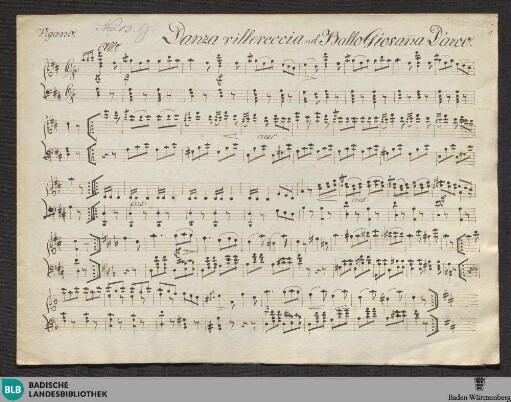 Vigano. No. 13. G Danza villereccia nel Ballo Giovana D'arco.
Allo
cresc
cres
cres
BLB BADISCHE
LANDESBIBLIOTHEK
Baden-Württemberg